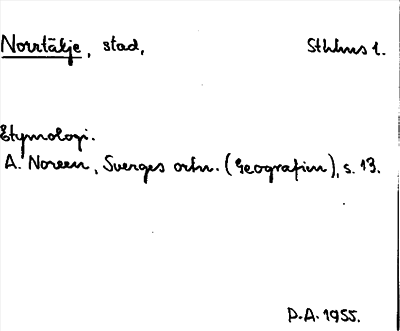 Norrtälje, stad, Sthlms l.
Etymologi.
A. Noreen, Sverges ortn. (Geografien), s. 13.
D.A. 1955.